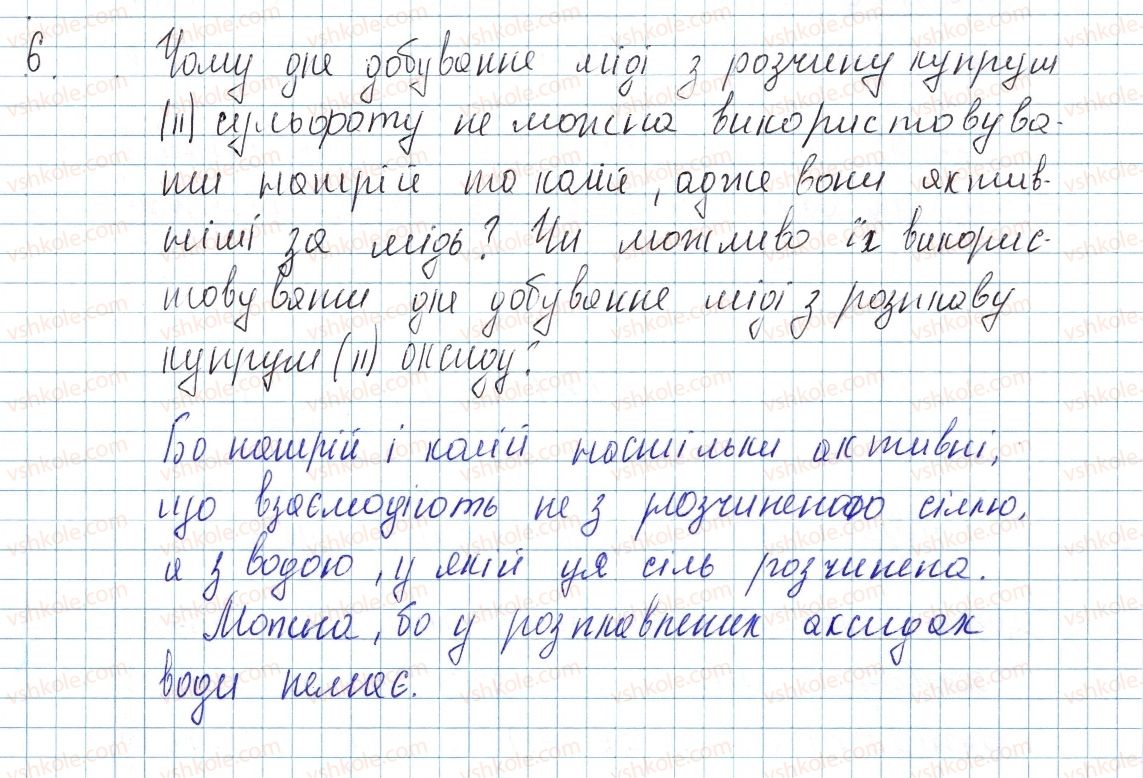 6. Чому для добування міді з розчину купрум
(ІІ) сульфату не можна використовува-
ти натрій та калій, адже вони актив-
ніші за мідь? Чи можливо їх викорис-
товувати для добування міді з розплаву
купрум (ІІ) оксиду?
Бо натрій і калій настільки активні,
що взаємодіють не з розчиненою сіллю,
а з водою, у якій ця сіль розчинена.
Можна, бо у розплавлених аксидах
води немає.